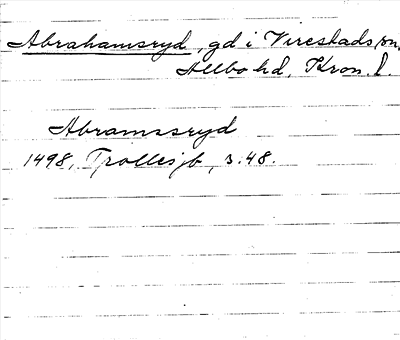 Abrahamsryd, gd i Virestads sn,
Allbo hd, Kron. l.
Abramssryd
1498, Trolles jb, s. 48.